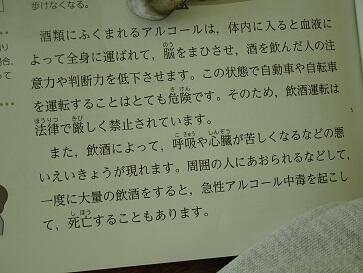 歩けなくなる。
酒類にふくまれるアルコールは，体内に入ると血液に
よって全身に運ばれて，脳をまひさせ，酒を飲んだ人の注
意力や判断力を低下させます。この状態で自動車や自転車
を運転することはとても危険です。そのため，飲酒運転は
法律で厳しく禁止されています。
また，飲酒によって，呼吸や心臓が苦しくなるなどの悪
いえいきょうが現れます。周囲の人にあおられるなどして，
一度に大量の飲酒をすると，急性アルコール中毒を起こし
て，死亡することもあります。